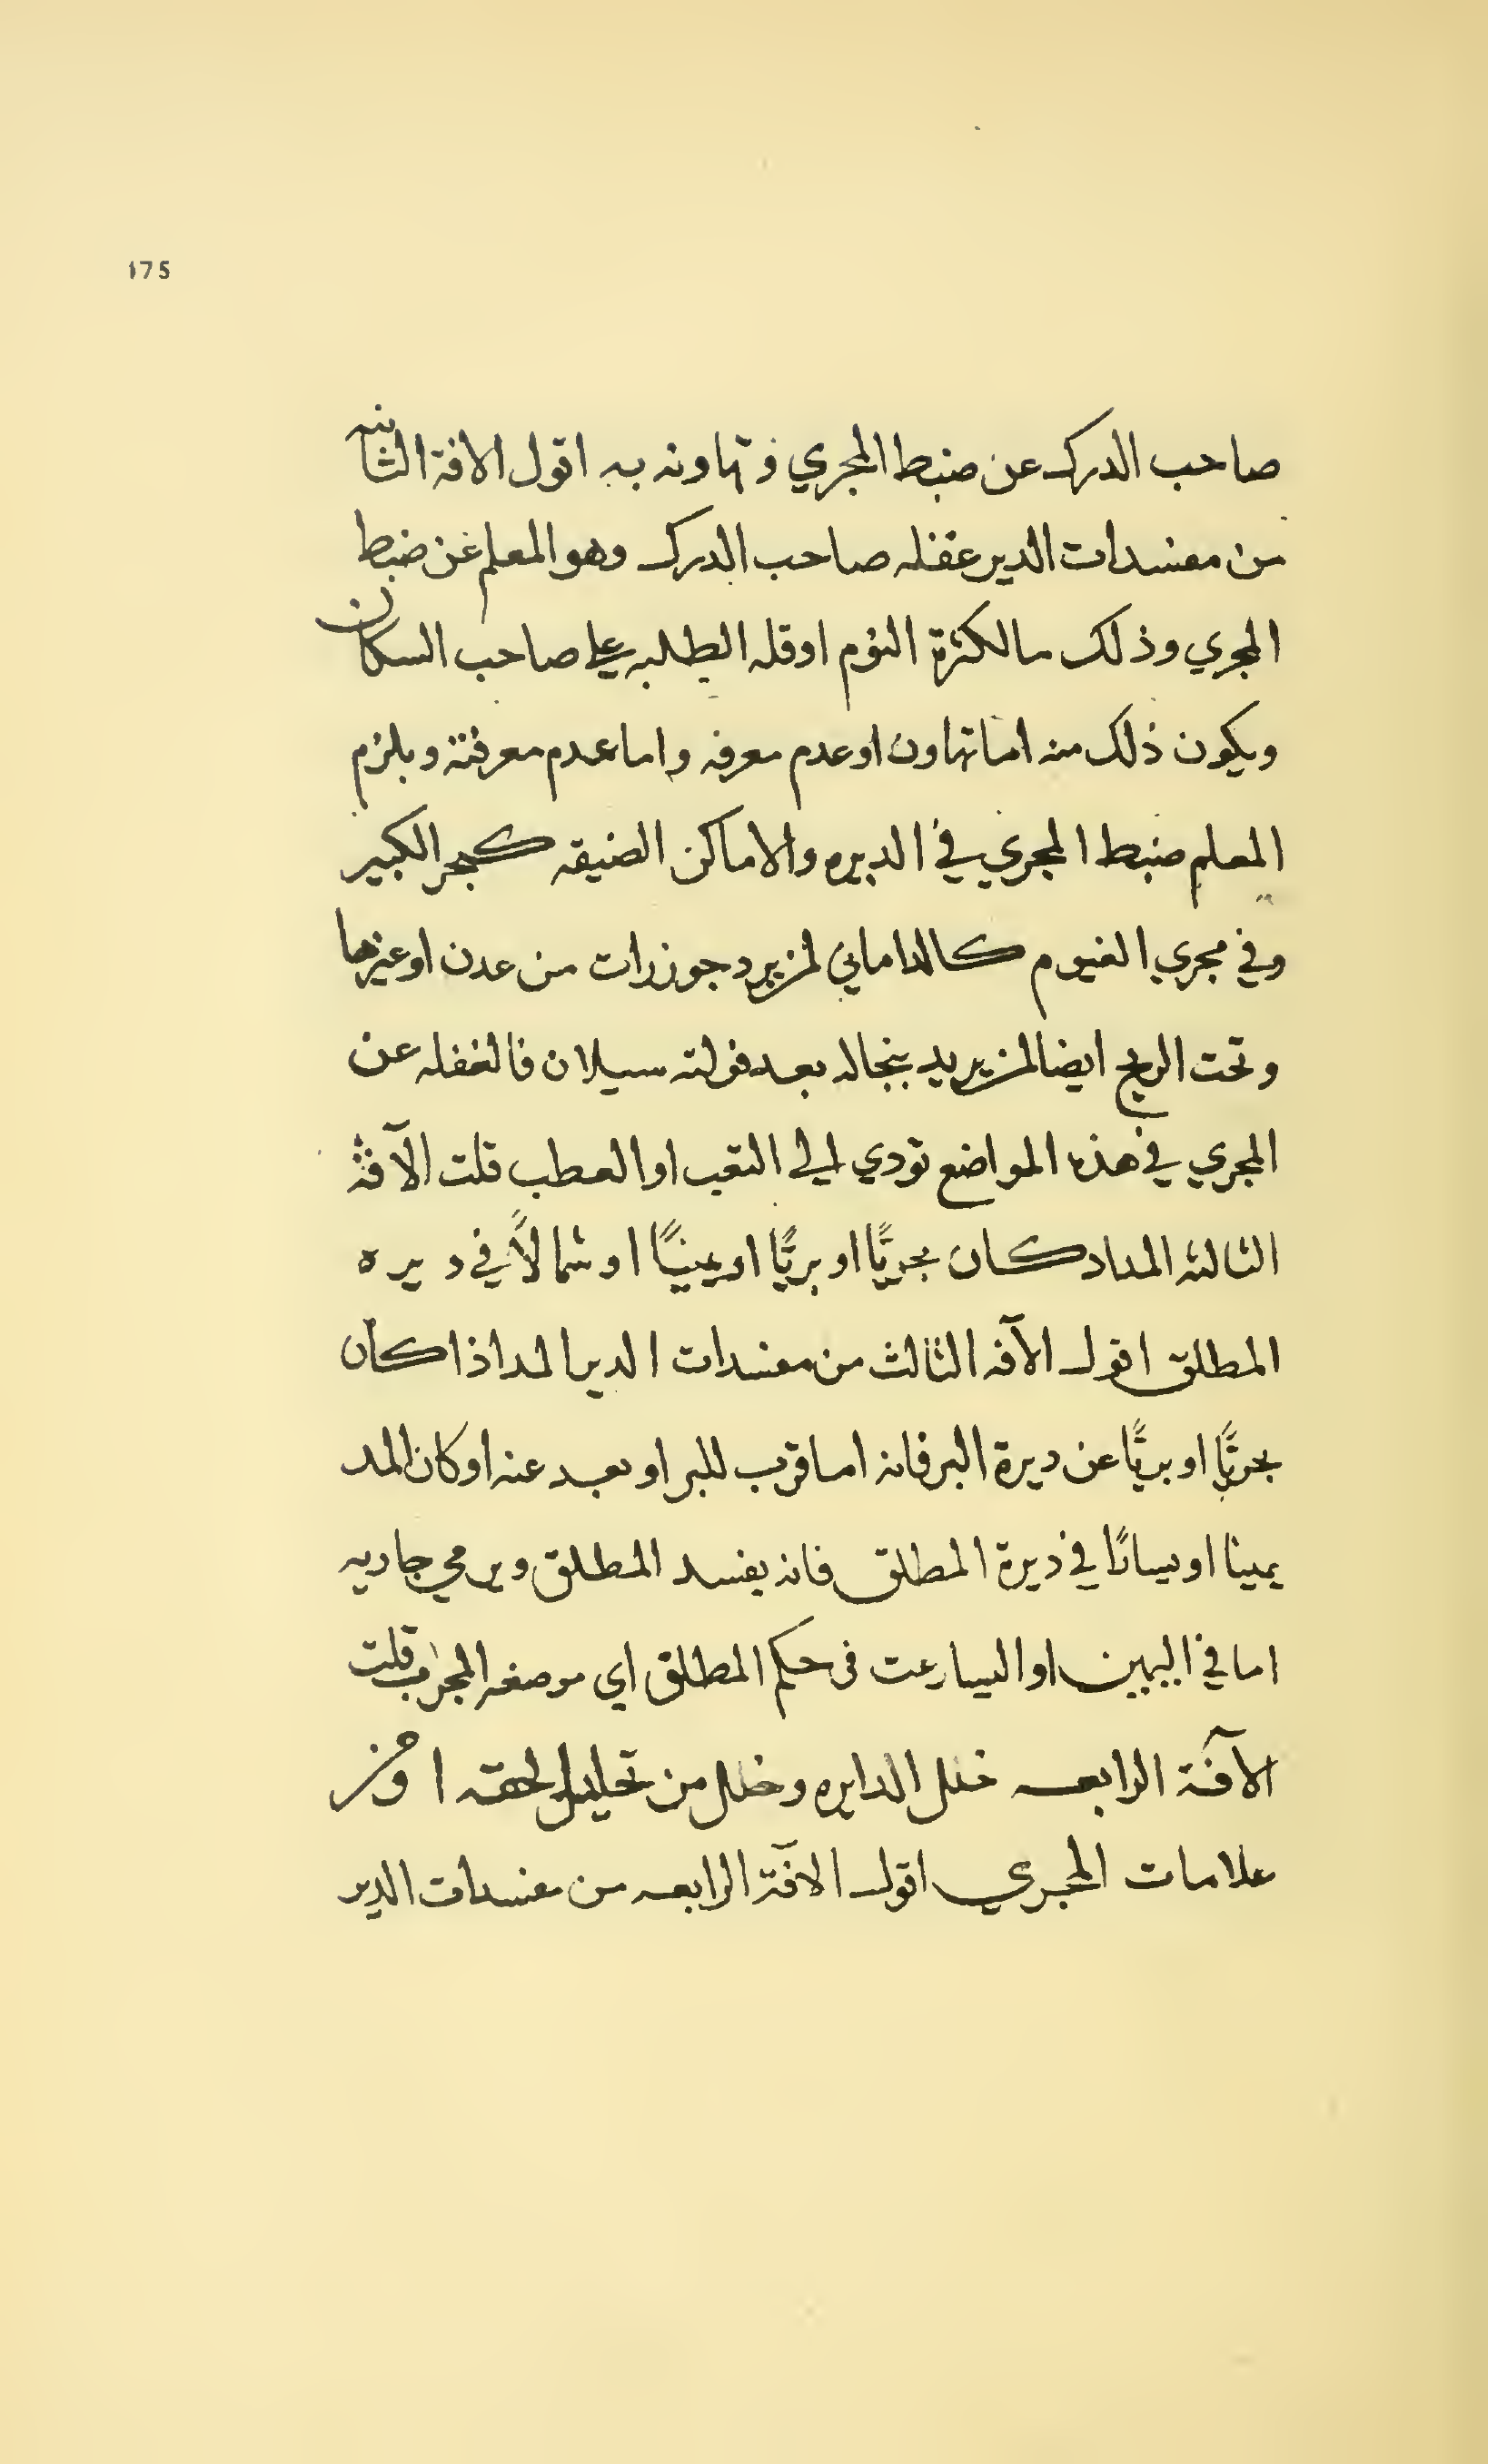 175
صاحب الدرك عن ضبط المجري وتهاونه به اقول الافة الثانيه
من مفسدات الدير غفله صاحب الدرك وهو المعلم عن ضبط
المجري وذلك مالكثرة النوم اوقله الطلبه علي صاحب السكان
ويكون ذلك منه اما تهاون اوعدم معرفه واما عدم معرفته ويلزم
المعلم ضبط المجري في الديره والاماكن الضيقه كحجر الكبير
وفي مجري الغيوم كالدامابي لمن يريد جوزرات من عدن اوغيرها
وتحت الريح ايضا لمن يريد بنجاله بعد فولته سيلان فالغفله عن
المجري في هذه المواضع تودي الي التعب او العطب قلت الآفة
الثالثه المداد كان بحريًّا او بريًّا او يمينًا او شمالاً في ديره
المطلق اقول الآفه الثالث من مفسدات الدير المد اذا كان
بحريًّا او بريًّا عن ديرة البر فانه اما قرب للبر او بعد عنه او كان المد
يمينا او يسارًا في ديرة المطلق فانه يفسد المطلق ويرمي جاريه
اما في اليمين او اليسار عن حكم المطلق اي المجراب قلت
الآفة الرابعه خلل الدايره وخلل من تخليل الحقه او من
علامات المجري اقول الافة الرابعه من مفسدات الدير